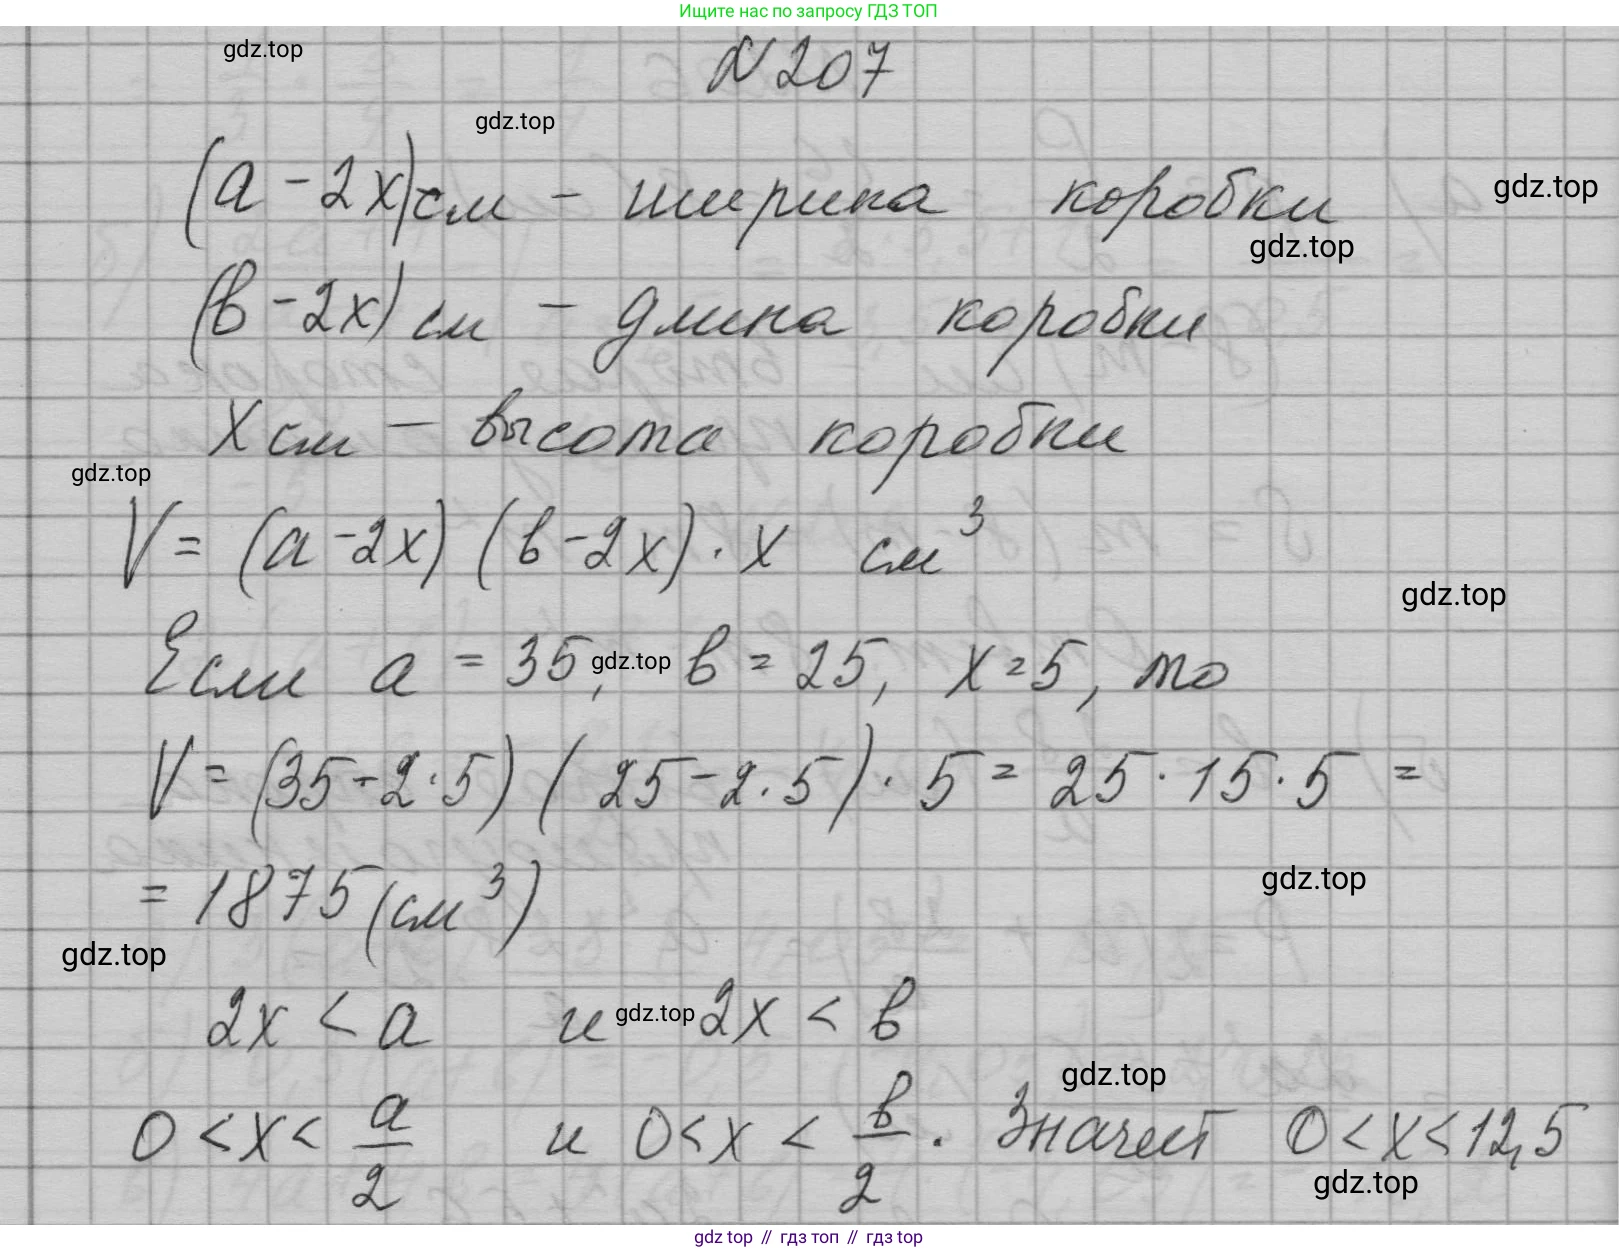 Ищите нас по запросу ГДЗ ТОП
gdz.top
N 207
gdz.top
(а - 2x) см - ширина коробки
gdz.top
gdz.top
(в - 2x) см - длина коробки
x см - высота коробки
gdz.top
V = (а - 2x) (в - 2x) · x см³
gdz.top
Если а = 35, в = 25, x = 5, то
gdz.top
V = (35 - 2 · 5) (25 - 2 · 5) · 5 = 25 · 15 · 5 =
= 1875 (см³)
gdz.top
gdz.top
2x < а и 2x < в
gdz.top
gdz.top
0 < x < а/2 и 0 < x < в/2. Значит 0 < x < 12,5
gdz.top
gdz.top // гдз топ // гдз top